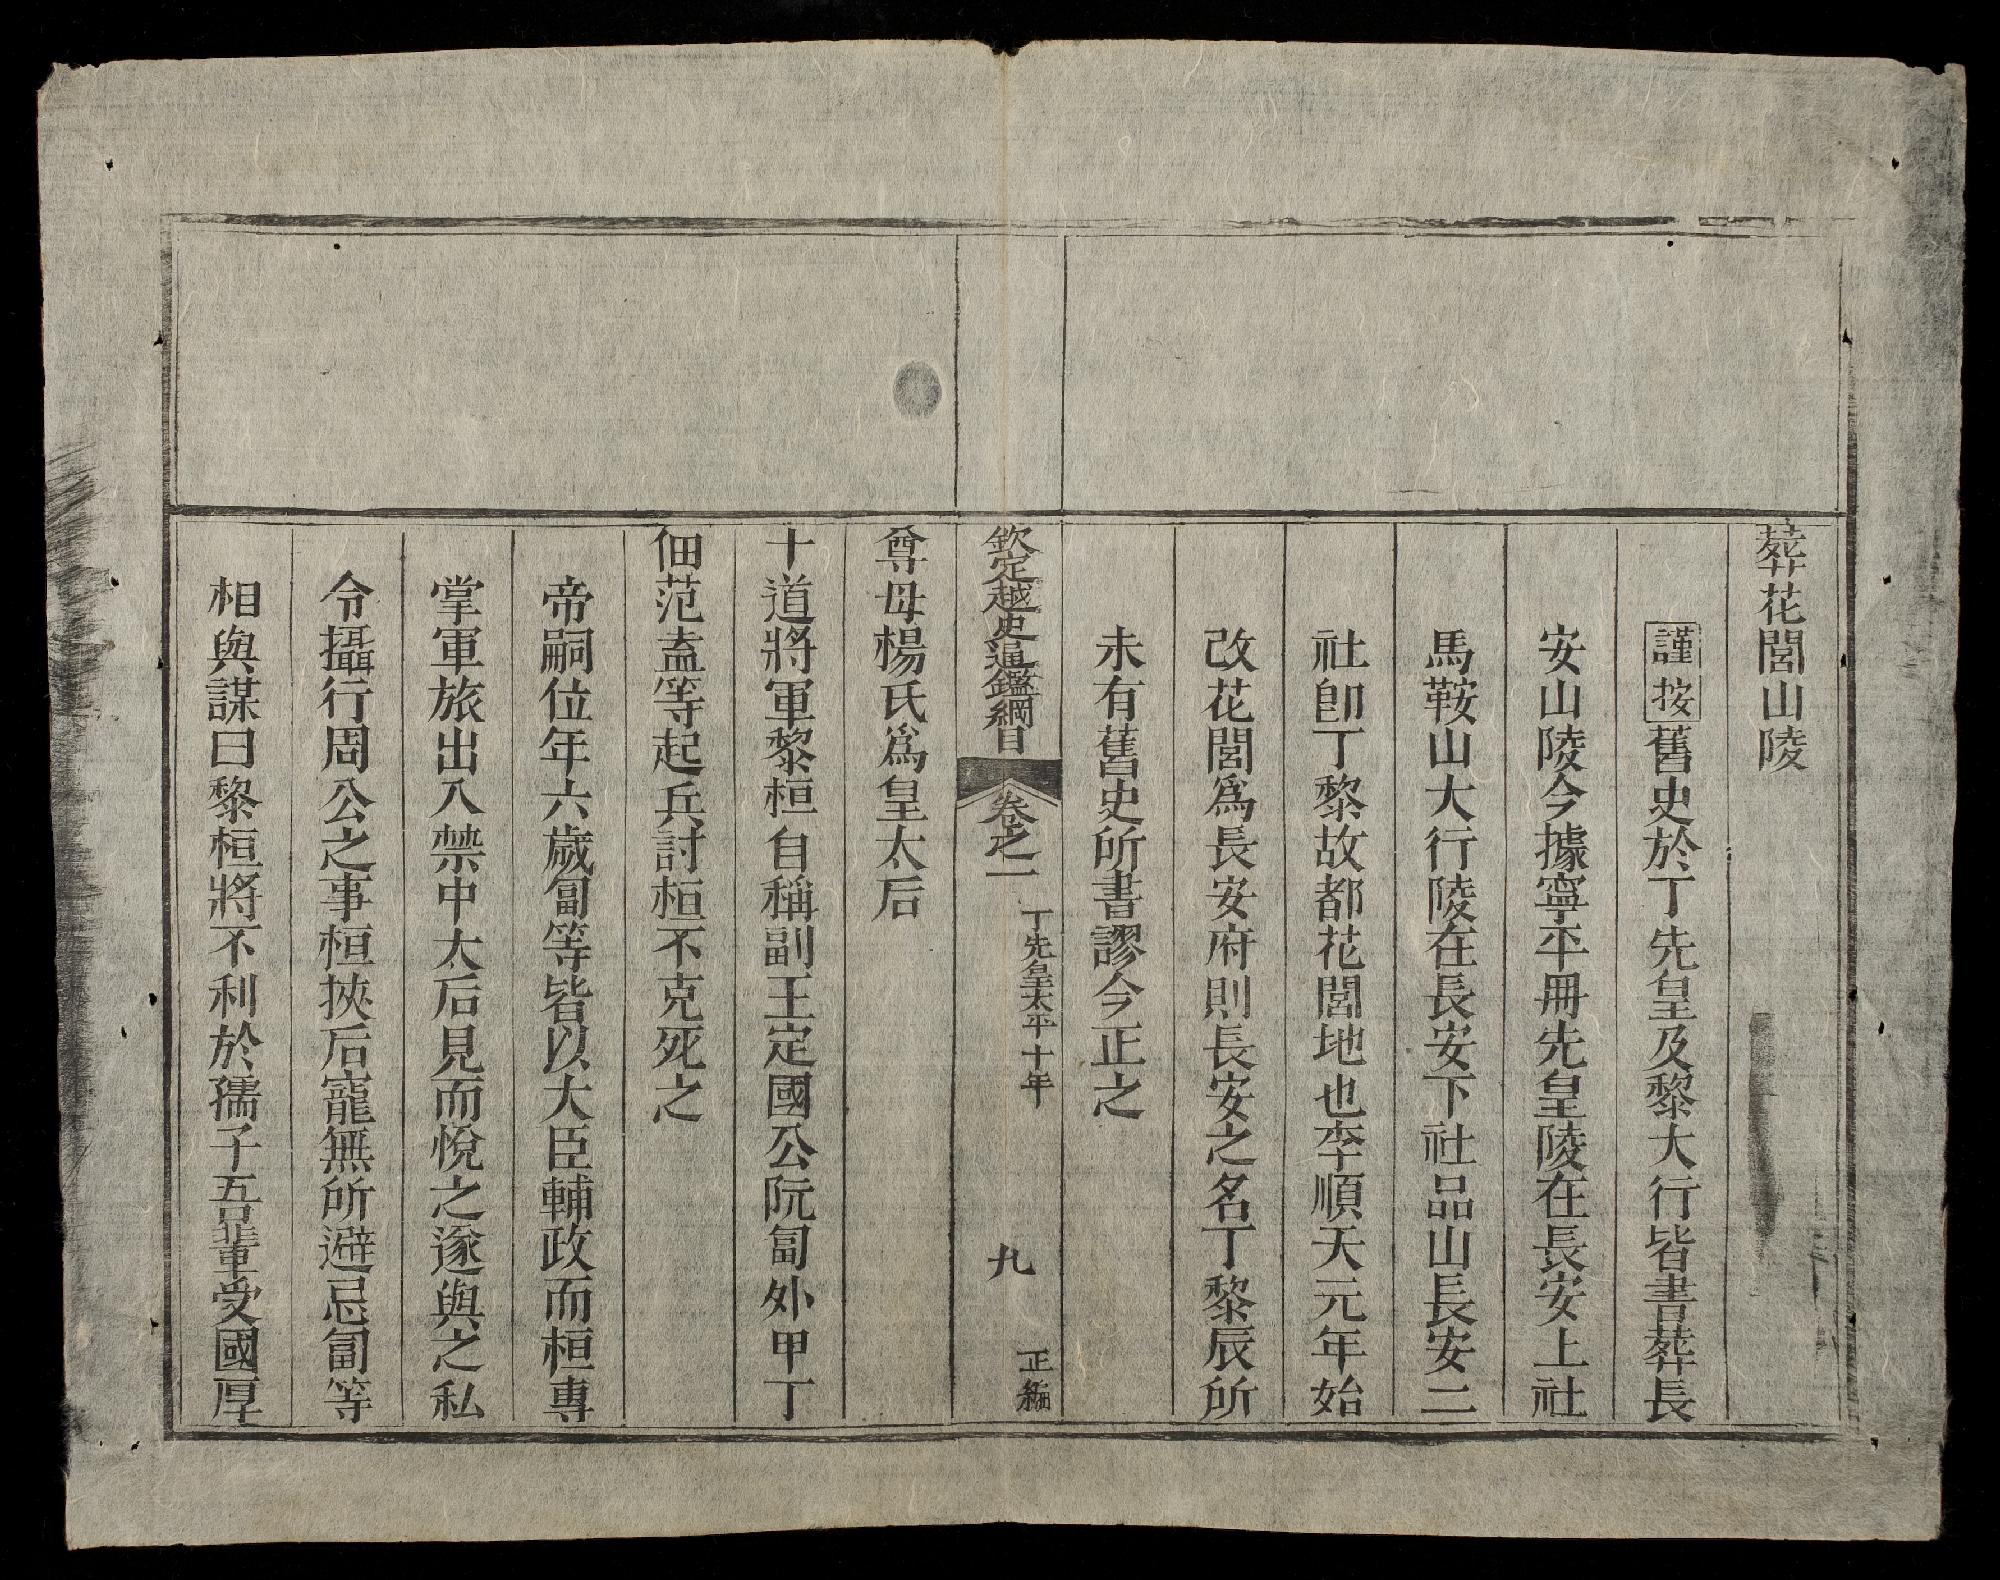 葬花閭山陵
謹按舊史於丁先皇及黎大行皆書葬長
安山陵今據寧平冊先皇陵在長安上社
馬鞍山大行陵在長安下社品山長安二
社卽丁黎故都花閭地也李順天元年始
改花閭爲長安府則長安之名丁黎辰所
未有舊史所書謬今正之
欽定越史通鑑綱目 卷之一 丁先皇太平十年 九 正編
尊母楊氏爲皇太后
十道將軍黎桓自稱副王定國公阮匐外甲丁
佃范盍等起兵討桓不克死之
帝嗣位年六歲匐等皆以大臣輔政而桓專
掌軍旅出入禁中太后見而悅之遂與之私
令攝行周公之事桓挾后寵無所避忌匐等
相與謀曰黎桓將不利於孺子吾輩受國厚